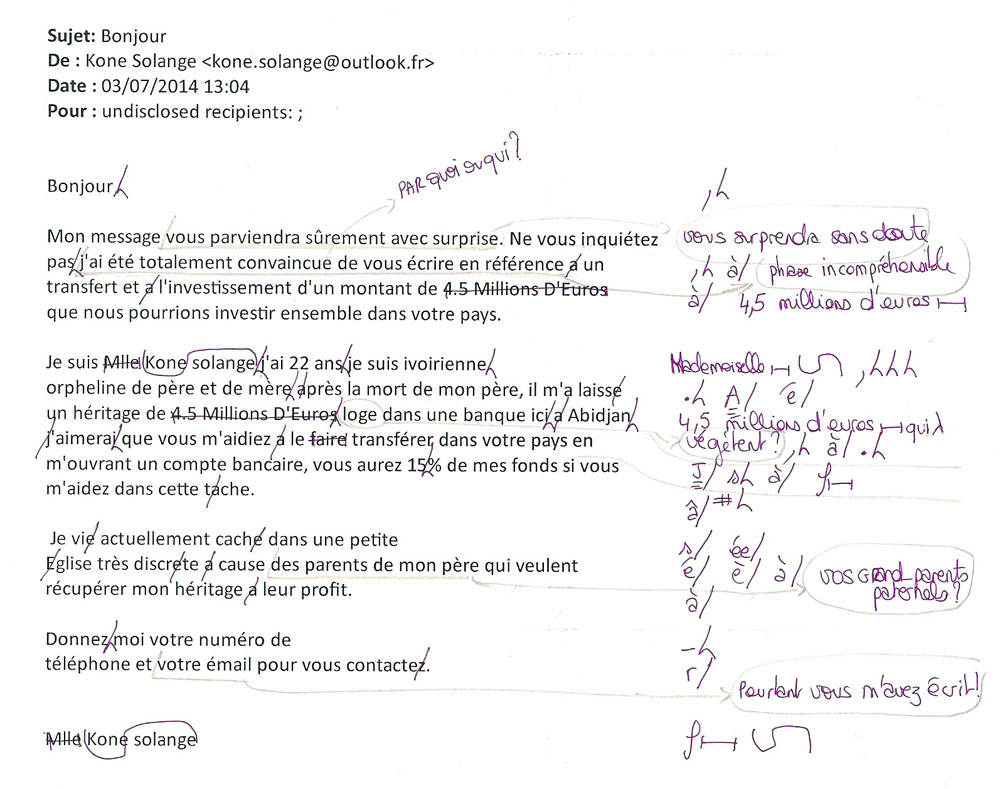 Sujet: Bonjour
De : Kone Solange <kone.solange@outlook.fr>
Date : 03/07/2014 13:04
Pour : undisclosed recipients: ;
PAR quoi ou qui ?
Bonjour
,
Mon message vous parviendra sûrement avec surprise. Ne vous inquiétez
vous surprendra sans doute
pas j'ai été totalement convaincue de vous écrire en référence a un
, à/ phrase incompréhensible
transfert et a l'investissement d'un montant de 4.5 Millions D'Euros
à/ 4,5 millions d'euros
que nous pourrions investir ensemble dans votre pays.
Je suis Mlle Kone solange j'ai 22 ans je suis ivoirienne
Mademoiselle ,
orpheline de père et de mère après la mort de mon père, il m'a laisse
. A/ é/
un héritage de 4.5 Millions D'Euros loge dans une banque ici a Abidjan
4,5 millions d'euros qui
végètent ? , à/ .
j'aimerai que vous m'aidiez a le faire transférer dans votre pays en
J/ s à/
m'ouvrant un compte bancaire, vous aurez 15% de mes fonds si vous
#
m'aidez dans cette tache.
â/
Je vie actuellement caché dans une petite
s/ ée/
Eglise très discrete a cause des parents de mon père qui veulent
é/ è/ à/ vos grand-parents
paternels ?
récupérer mon héritage a leur profit.
à/
Donnez moi votre numéro de
-
téléphone et votre émail pour vous contactez.
r/
Pourtant vous m'avez écrit !
Mlle Kone solange